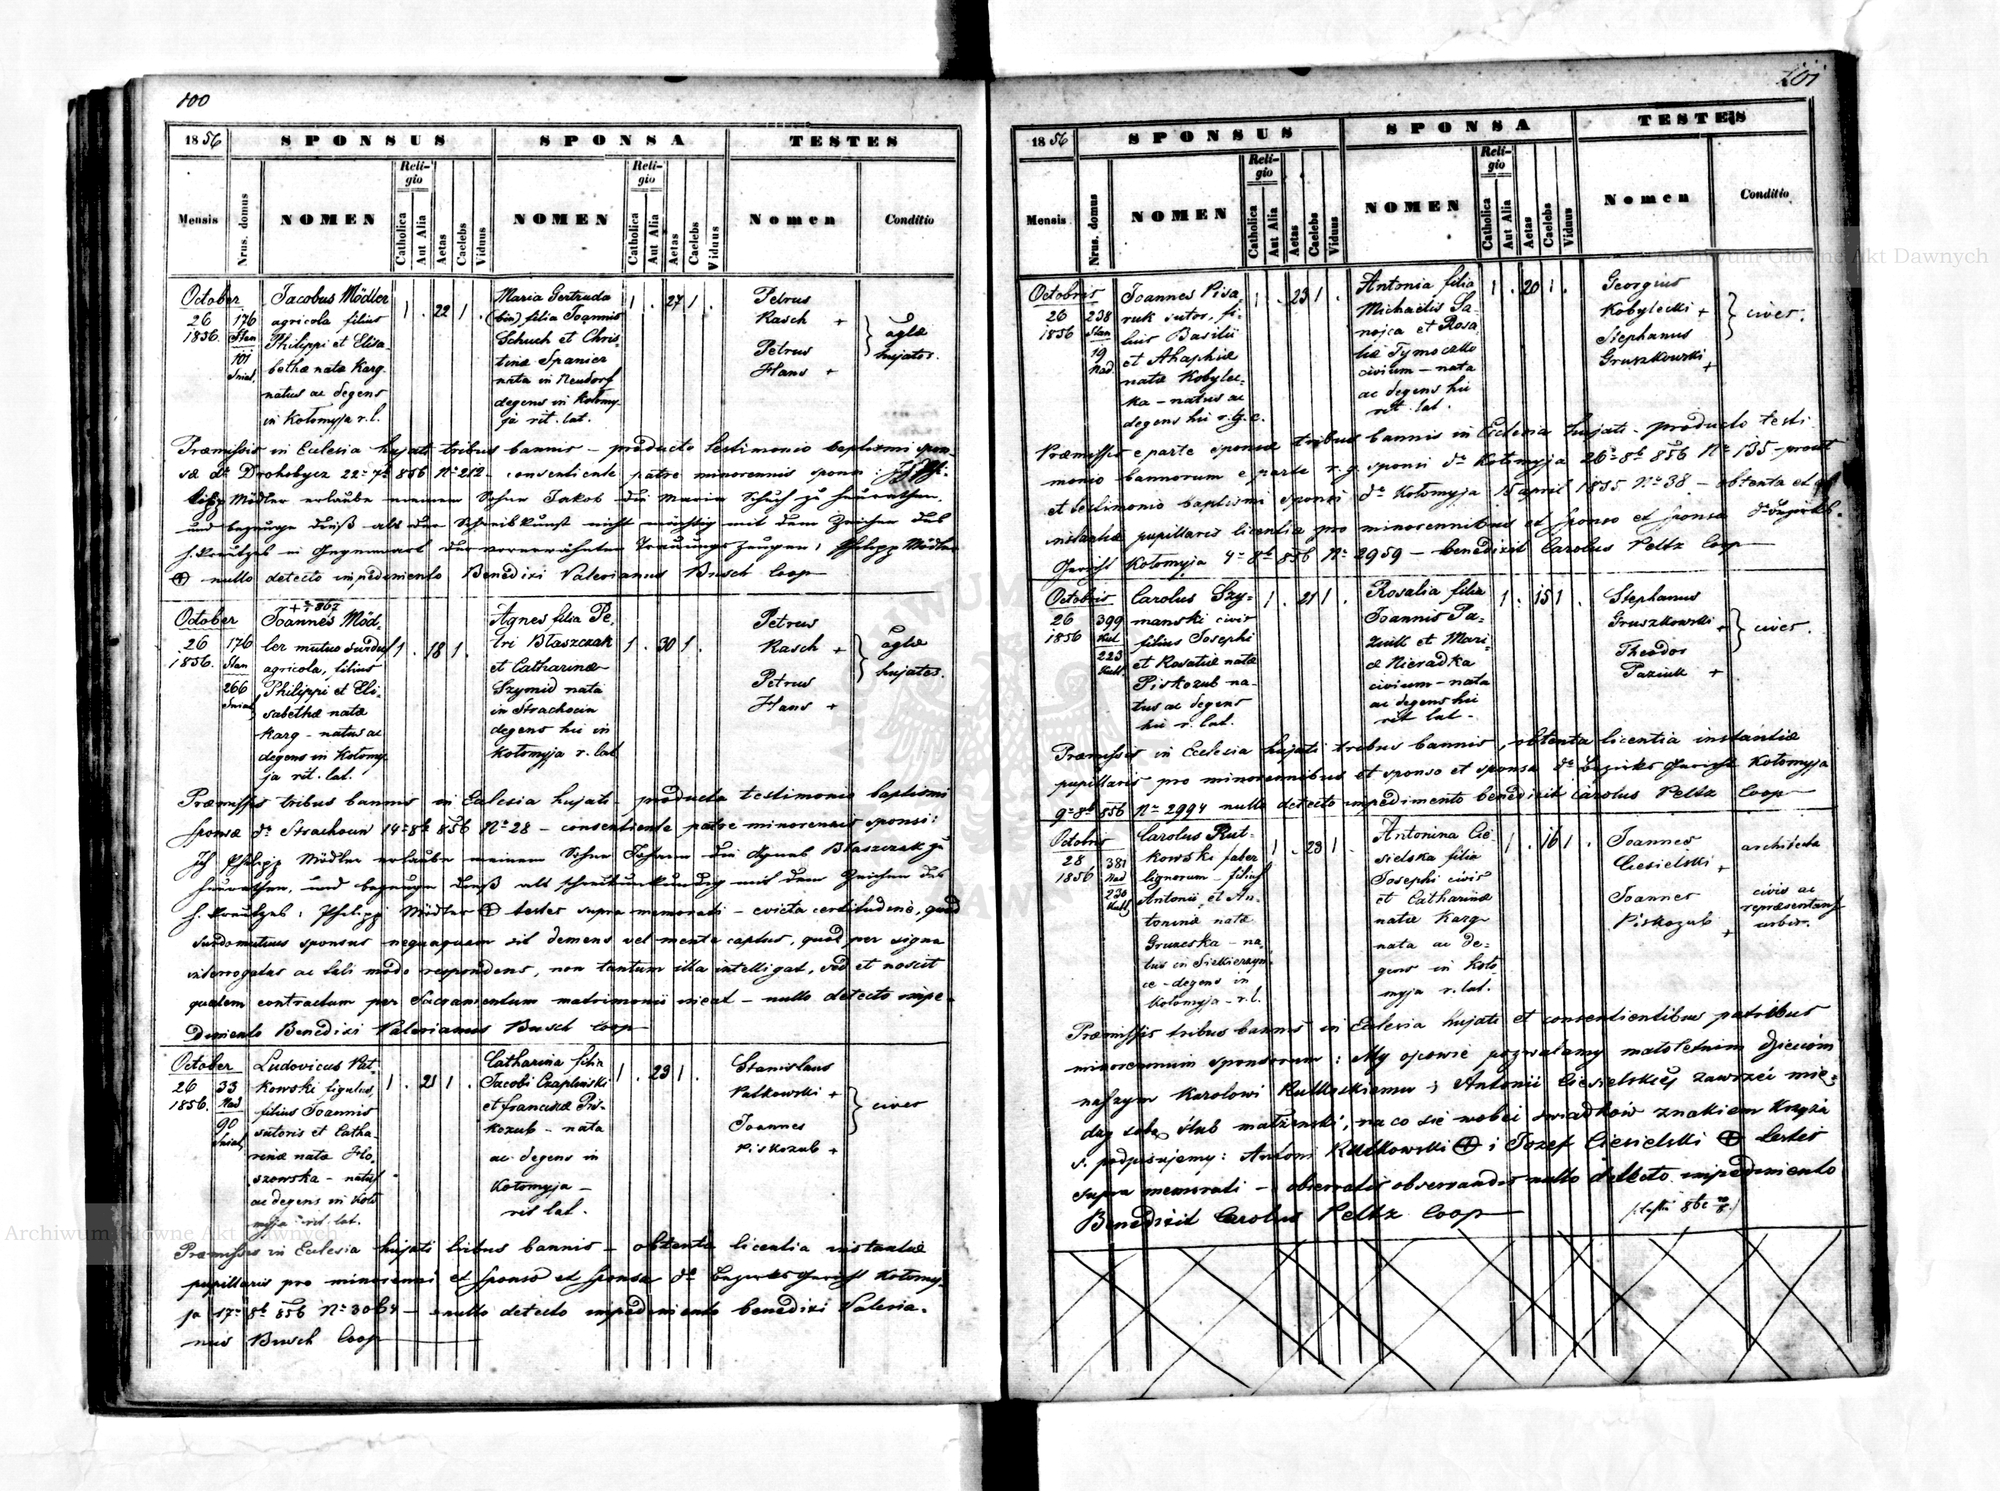 100
1856
SPONSUS
SPONSA
TESTES
Mensis
Nrus. domus
NOMEN
Religio
Catholica
Aut Alia
Aetas
Caelebs
Viduus
NOMEN
Religio
Catholica
Aut Alia
Aetas
Caelebs
Viduus
Nomen
Conditio
October
26
1856.
176
Stan
101
Sniat.
Jacobus Mödler
agricola filius
Philippi et Elisa-
bethæ natæ Karg.
natus ac degens
in Kołomyja r. l.
1 . 22 1 .
Maria Gertruda
(bin) filia Joannis
Schuch et Chris-
tinæ Spanier
nata in Neudorf
degens in Kołomy-
ja rit. lat.
1 . 27 1 .
Petrus
Rasch +
Petrus
Hans +
aglæ
hujates.
Præmissis in Ecclesia hujati tribus bannis – producto testimonio baptismi spon-
sæ dto Drohobycz 22 7b 856 No 212 – consentiente patre minorennis sponsi: Ich Phi-
lipp Mödler erlaube meinem Sohne Jakob die Maria Schuch zu heurathen,
und bezeuge dieß als der Schreibkunst nicht mächtig mit dem Zeichen des
h. Kreutzes in Gegenwart der vorerwähnten Trauungszeugen: Philipp Mödler
⊕ nullo detecto impedimento Benedixi Valerianus Busch Coop
October
26
1856.
176
Stan
266
Sniat
+ 867
Joannes Möd-
ler mutus surdus
agricola, filius
Philippi et Eli-
sabethæ natæ
Karg – natus ac
degens in Kołomy-
ja rit. lat.
1 . 18 1 .
Agnes filia Pe-
tri Błaszczak
et Catharinæ
Szymid nata
in Strachocin
degens hic in
Kołomyja r. lat
1 . 30 1 .
Petrus
Rasch +
Petrus
Hans +
aglæ
hujates.
Præmissis tribus bannis in Ecclesia hujati – producto testimonio baptismi
sponsæ dto Strachocin 14 8b 856 No 28 – consentiente patre minorennis sponsi:
Ich Philipp Mödler erlaube meinem Sohne Johann die Agnes Błaszczak zu
heurathen, und bezeuge dieß als schreibunkundig mit dem Zeichen des
h. Kreutzes: Philipp Mödler ⊕ testes supra memorati – evicta certitudine, quod
surdomutus sponsus nequaquam sit demens vel mente captus, quod per signa
interrogatus ac tali modo respondens, non tantum illa intelligat, sed et noscit
qualem contractum per Sacramentum matrimonii ineat – nullo detecto impe-
dimento Benedixi Valerianus Busch Coop
October
26
1856.
33
Nad
90
Sniat
Ludovicus Pat-
kowski figulus,
filius Joannis
sutoris et Catha-
rinæ natæ Ho-
szowska – natus
ac degens in Koło
myja rit. lat.
1 . 21 1 .
Catharina filia
Jacobi Czapliński
et Franciscæ Pis-
kozub – nata
ac degens in
Kołomyja –
rit lat.
1 . 23 1 .
Stanislaus
Patkowski +
Joannes
Piskozub +
cives
Præmissis in Ecclesia hujati tribus bannis – obtenta licentia instantiæ
pupillaris pro minorenni et sponso et sponsa dto Bezirks Gericht Kołomy-
ja 17 8b 856 No 3064 – nullo detecto impedimento benedixi Valeria-
nus Busch Coop
101
1856
SPONSUS
SPONSA
TESTES
Mensis
Nrus. domus
NOMEN
Religio
Catholica
Aut Alia
Aetas
Caelebs
Viduus
NOMEN
Religio
Catholica
Aut Alia
Aetas
Caelebs
Viduus
Nomen
Conditio
Octobris
26
1856
238
Stan
19
Nad
Joannes Pisa-
ruk sutor, fi-
lius Basilii
et Ahaphiæ
natæ Kobylec-
ka – natus ac
degens hic r. g. c.
1 . 23 1 .
Antonia filia
Michaëlis Sa-
nojca et Rosa-
liæ Tymoczko
civium – nata
ac degens hic
rit. lat.
1 . 20 1 .
Georgius
Kobylecki +
Stephanus
Gruszkowski +
cives.
Præmissis e parte sponsæ tribus bannis in Ecclesia hujati – producto testi
monio bannorum e parte r. g. sponsi dto Kołomyja 26 8b 856 No 135 – prout
et testimonio baptismi sponsi dto Kołomyja 15 april 1835 No 38 – obtenta et ab
instantia pupillaris licentia pro minorennibus et sponso et sponsa dto Bezirks-
Gericht Kołomyja 4 8b 856 No 2959 – benedixit Carolus Peltz Coop
Octobris
26
1856
399
Kut
223
Kutt
Carolus Szy-
manski civis
filius Josephi
et Rosaliæ natæ
Piskozub na-
tus ac degens
hic r. lat.
1 . 21 1 .
Rosalia filia
Joannis Pa-
ziuk et Mari-
æ Nieradka
civium – nata
ac degens hic
rit lat –
1 . 15 1 .
Stephanus
Gruszkowski +
Theodor
Paziuk +
cives.
Præmissis in Ecclesia hujati tribus bannis, obtenta licentia instantiæ
pupillaris pro minorennibus et sponso et sponsa dto Bezirks Gericht Kołomyja
9 8b 856 No 2994 nullo detecto impedimento benedixit Carolus Peltz Coop
Octobris
28
1856
381
Nad
230
Kutt
Carolus Rut-
kowski faber
lignorum – filius
Antonii et An-
toninæ natæ
Gruncska – na-
tus in Siekierzyn-
ce – degens in
Kołomyja – r. l.
1 . 23 1 .
Antonina Cie-
sielska filia
Josephi civis
et Catharinæ
natæ Karg
nata ac de-
gens in Koło-
myja r. lat.
1 . 16 1 .
Joannes
Ciesielski +
Joannes
Piskozub +
architecta
civis ac
repræsentans
urbis.
Præmissis tribus bannis in Ecclesia hujati et consentientibus patribus
minorennium sponsorum: My ojcowie pozwalamy małoletnim dzieciom
naszym Karolowi Rutkowskiemu i Antonii Ciesielskiéj zawrzéć mię-
dzy sobą ślub małżeński, na co się wobec swiadków znakiem Krzyża
s. podpisujemy: Antoni Rutkowski ⊕ i Jozef Ciesielski ⊕ testes
supra memorati – observatis observandis nullo detecto impedimento
Benedixit Carolus Peltz Coop